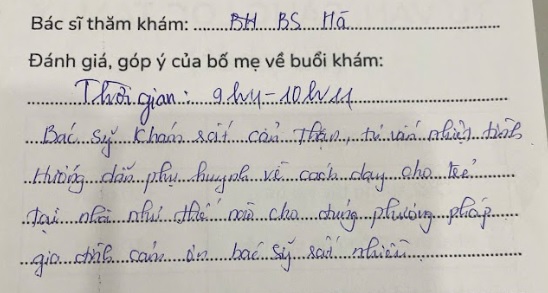 Bác sĩ thăm khám: BH BS Hà
Đánh giá, góp ý của bố mẹ về buổi khám:
Thời gian: 9h - 10h
Bác sỹ khám rất cẩn thận, tư vấn nhiệt tình
Hướng dẫn phụ huynh về cách dạy cho trẻ
tại nhà như thế nào cho đúng phương pháp
gia đình cảm ơn bác sỹ rất nhiều.